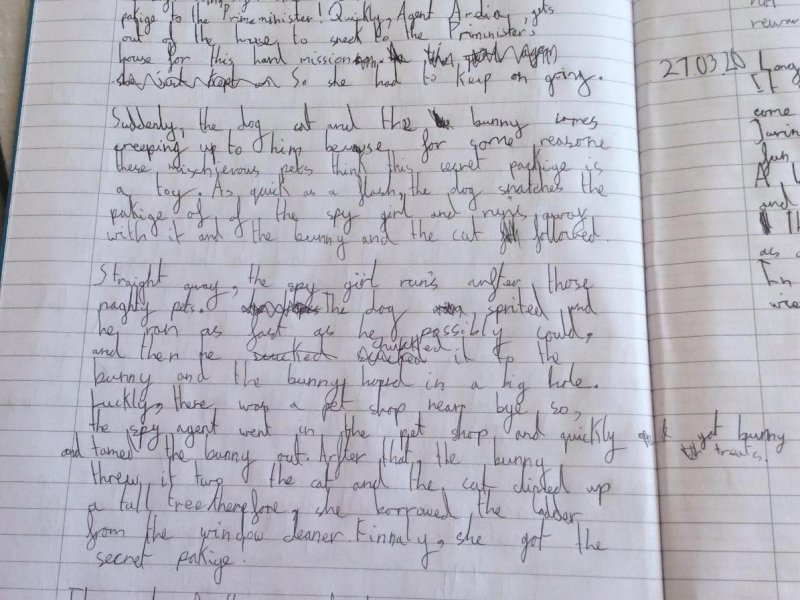 pakige to the Primeminister! Quickly, Agent Ardia, gets
out of the house to sneek to the Priminister's
house for this hard mission
So she had to keep on going.
Suddenly, the dog cat and the bunny comes
creeping up to him because for some reasone
these mischievous pets think this secret packige is
a toy. As quick as a flash, the dog snatches the
pakige of of the spy girl and runs away
with it and the bunny and the cat followed.
Straight away, the spy girl runs after those
naghty pets. The dog sprited and
he ran as fast as he possibly could,
and then he chucked it to the
bunny and the bunny hoped in a big hole.
Luckly, there was a pet shop near bye so,
the spy agent went in the pet shop and quickly got bunny
treats!
and tamed the bunny out. After that the bunny
threw it two the cat and the cat climed up
a tall tree therefore, she borrowed the ladder
from the window cleaner. Finnaly, she got the
secret pakige.
rewar
27.03.20 Long
It
come
Durin
fun
A l
and
as
In